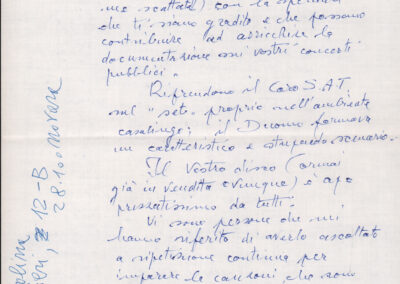 me scattate) con la speranza
che ti siano gradite e che possano
contribuire ad arricchire la
documentazione sui vostri concerti
pubblici.
Rifrendono il Coro S.A.T.
sul "set" proprio nell'ambiente
casalingo; il Duomo formava
un caratteristico e stupendo scenario.
Il Vostro disco (ormai
già in vendita ovunque) è apprezzatissimo da tutti.
Vi sono persone che mi
hanno riferito di averlo ascoltato
a ripetizione continua per
imparare le canzoni, che sono
12-B
28100 Novara